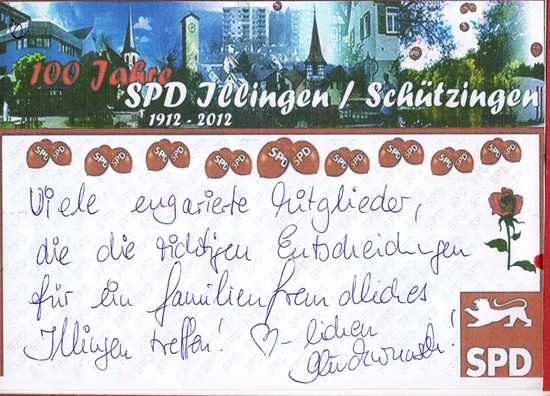 100 Jahre
SPD Illingen / Schützingen
1912 - 2012
SPD SPD SPD SPD SPD SPD SPD SPD SPD SPD SPD SPD SPD SPD SPD SPD
Viele engarierte Mitglieder,
die die richtigen Entscheidungen
für ein familienfreundliches
Illingen treffen! ♡-lichen
Glückwunsch!
SPD